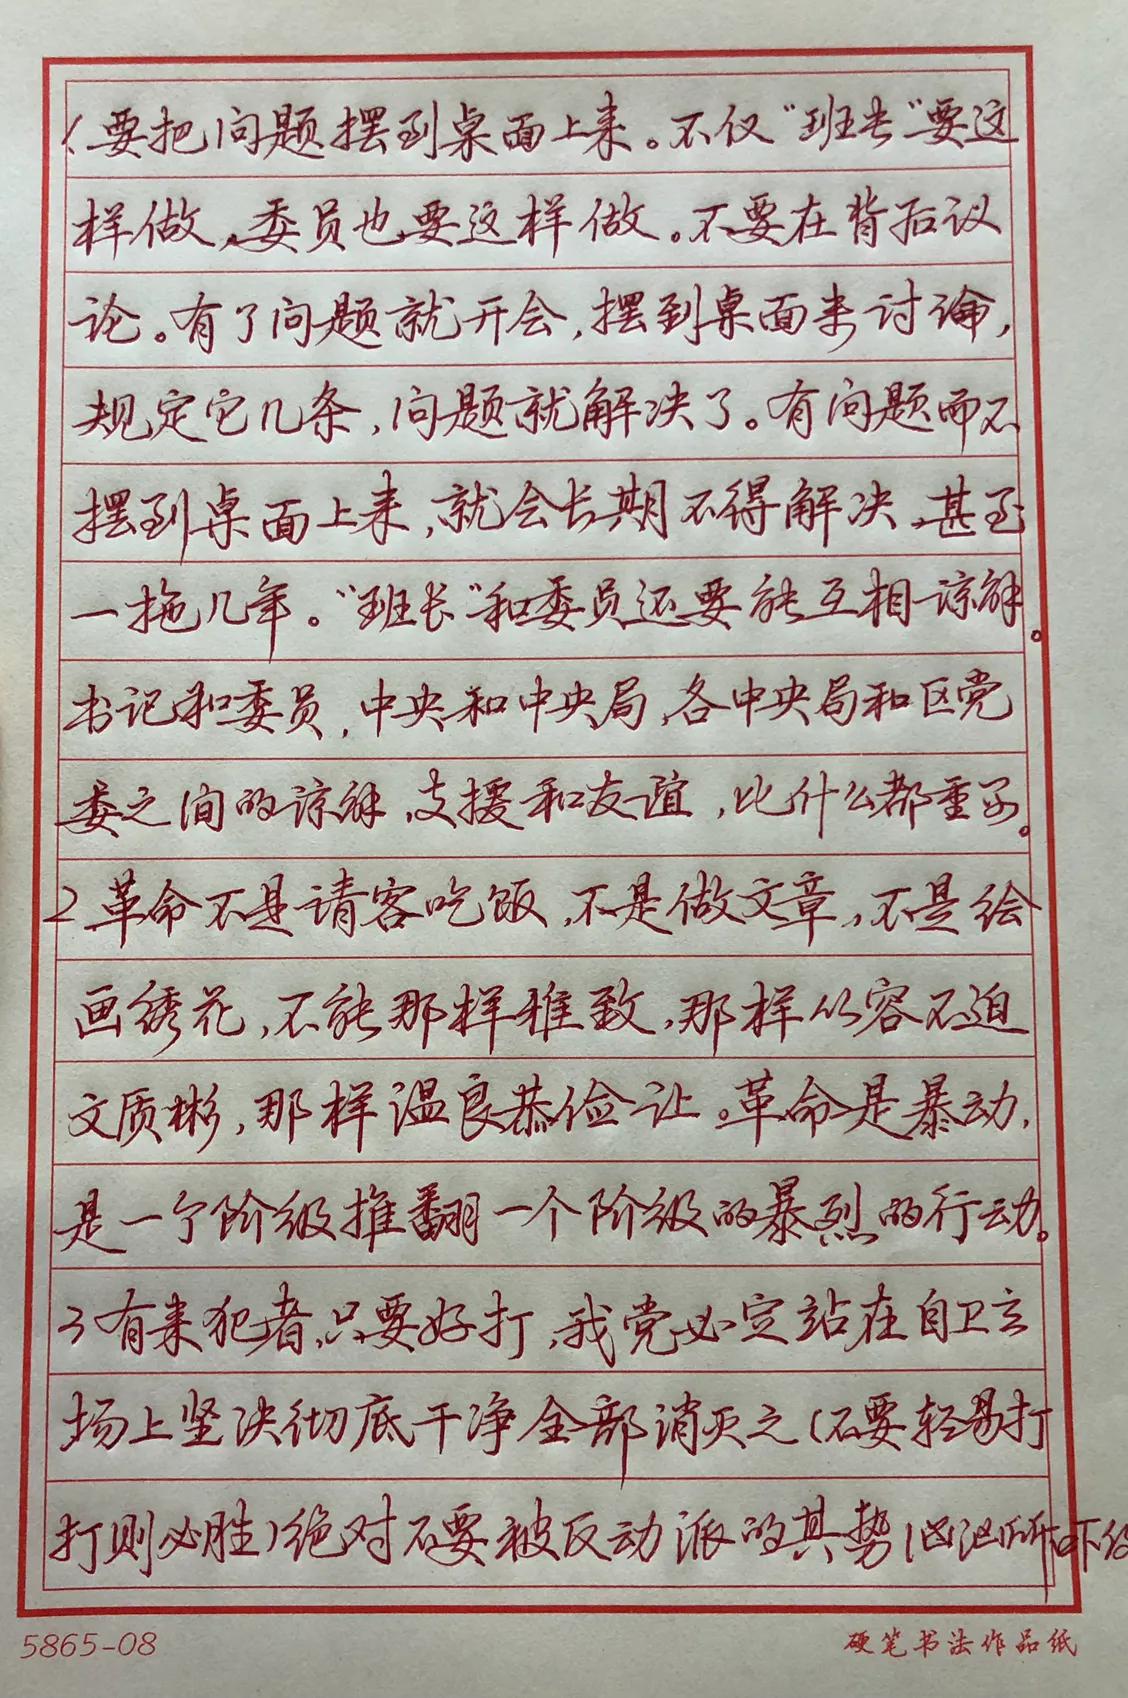 1.要把问题摆到桌面上来。不仅“班长”要这
样做,委员也要这样做。不要在背后议
论。有了问题就开会,摆到桌面来讨论,
规定它几条,问题就解决了。有问题而不
摆到桌面上来,就会长期不得解决,甚至
一拖几年。“班长”和委员还要能互相谅解。
书记和委员,中央和中央局,各中央局和区党
委之间的谅解,支援和友谊,比什么都重要。
2革命不是请客吃饭,不是做文章,不是绘
画绣花,不能那样雅致,那样从容不迫
文质彬,那样温良恭俭让。革命是暴动,
是一个阶级推翻一个阶级的暴烈的行动。
3有来犯者,只要好打,我党必定站在自卫立
场上坚决彻底干净全部消灭之(不要轻易打
打则必胜)绝对不要被反动派的其势汹汹所吓
5865-08
硬笔书法作品纸